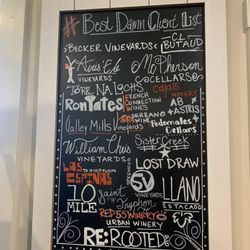 # Best Damn Client List
BECKER VINEYARDS
C.L. BUTAUD
Aires Ele
VINEYARDS
McPherson
CELLARS
TORR NA LOCHS
Calais
WINERY
Ron Yates
FRENCH
CONNECTION
WINES
AB
ASTRIS
SERRANO
WINE
Pedernales
Cellars
Valley Mills
VINEYARDS
William Chris
VINEYARDS
Sister Creek
LOST DRAW
LAS
ESPINAS
TEXAS HIGHLAND
SV
LLANO
ESTACADO
10
MILE
Saint
Tryphon
RED 55 WINERY
URBAN WINERY
RE:ROOTED